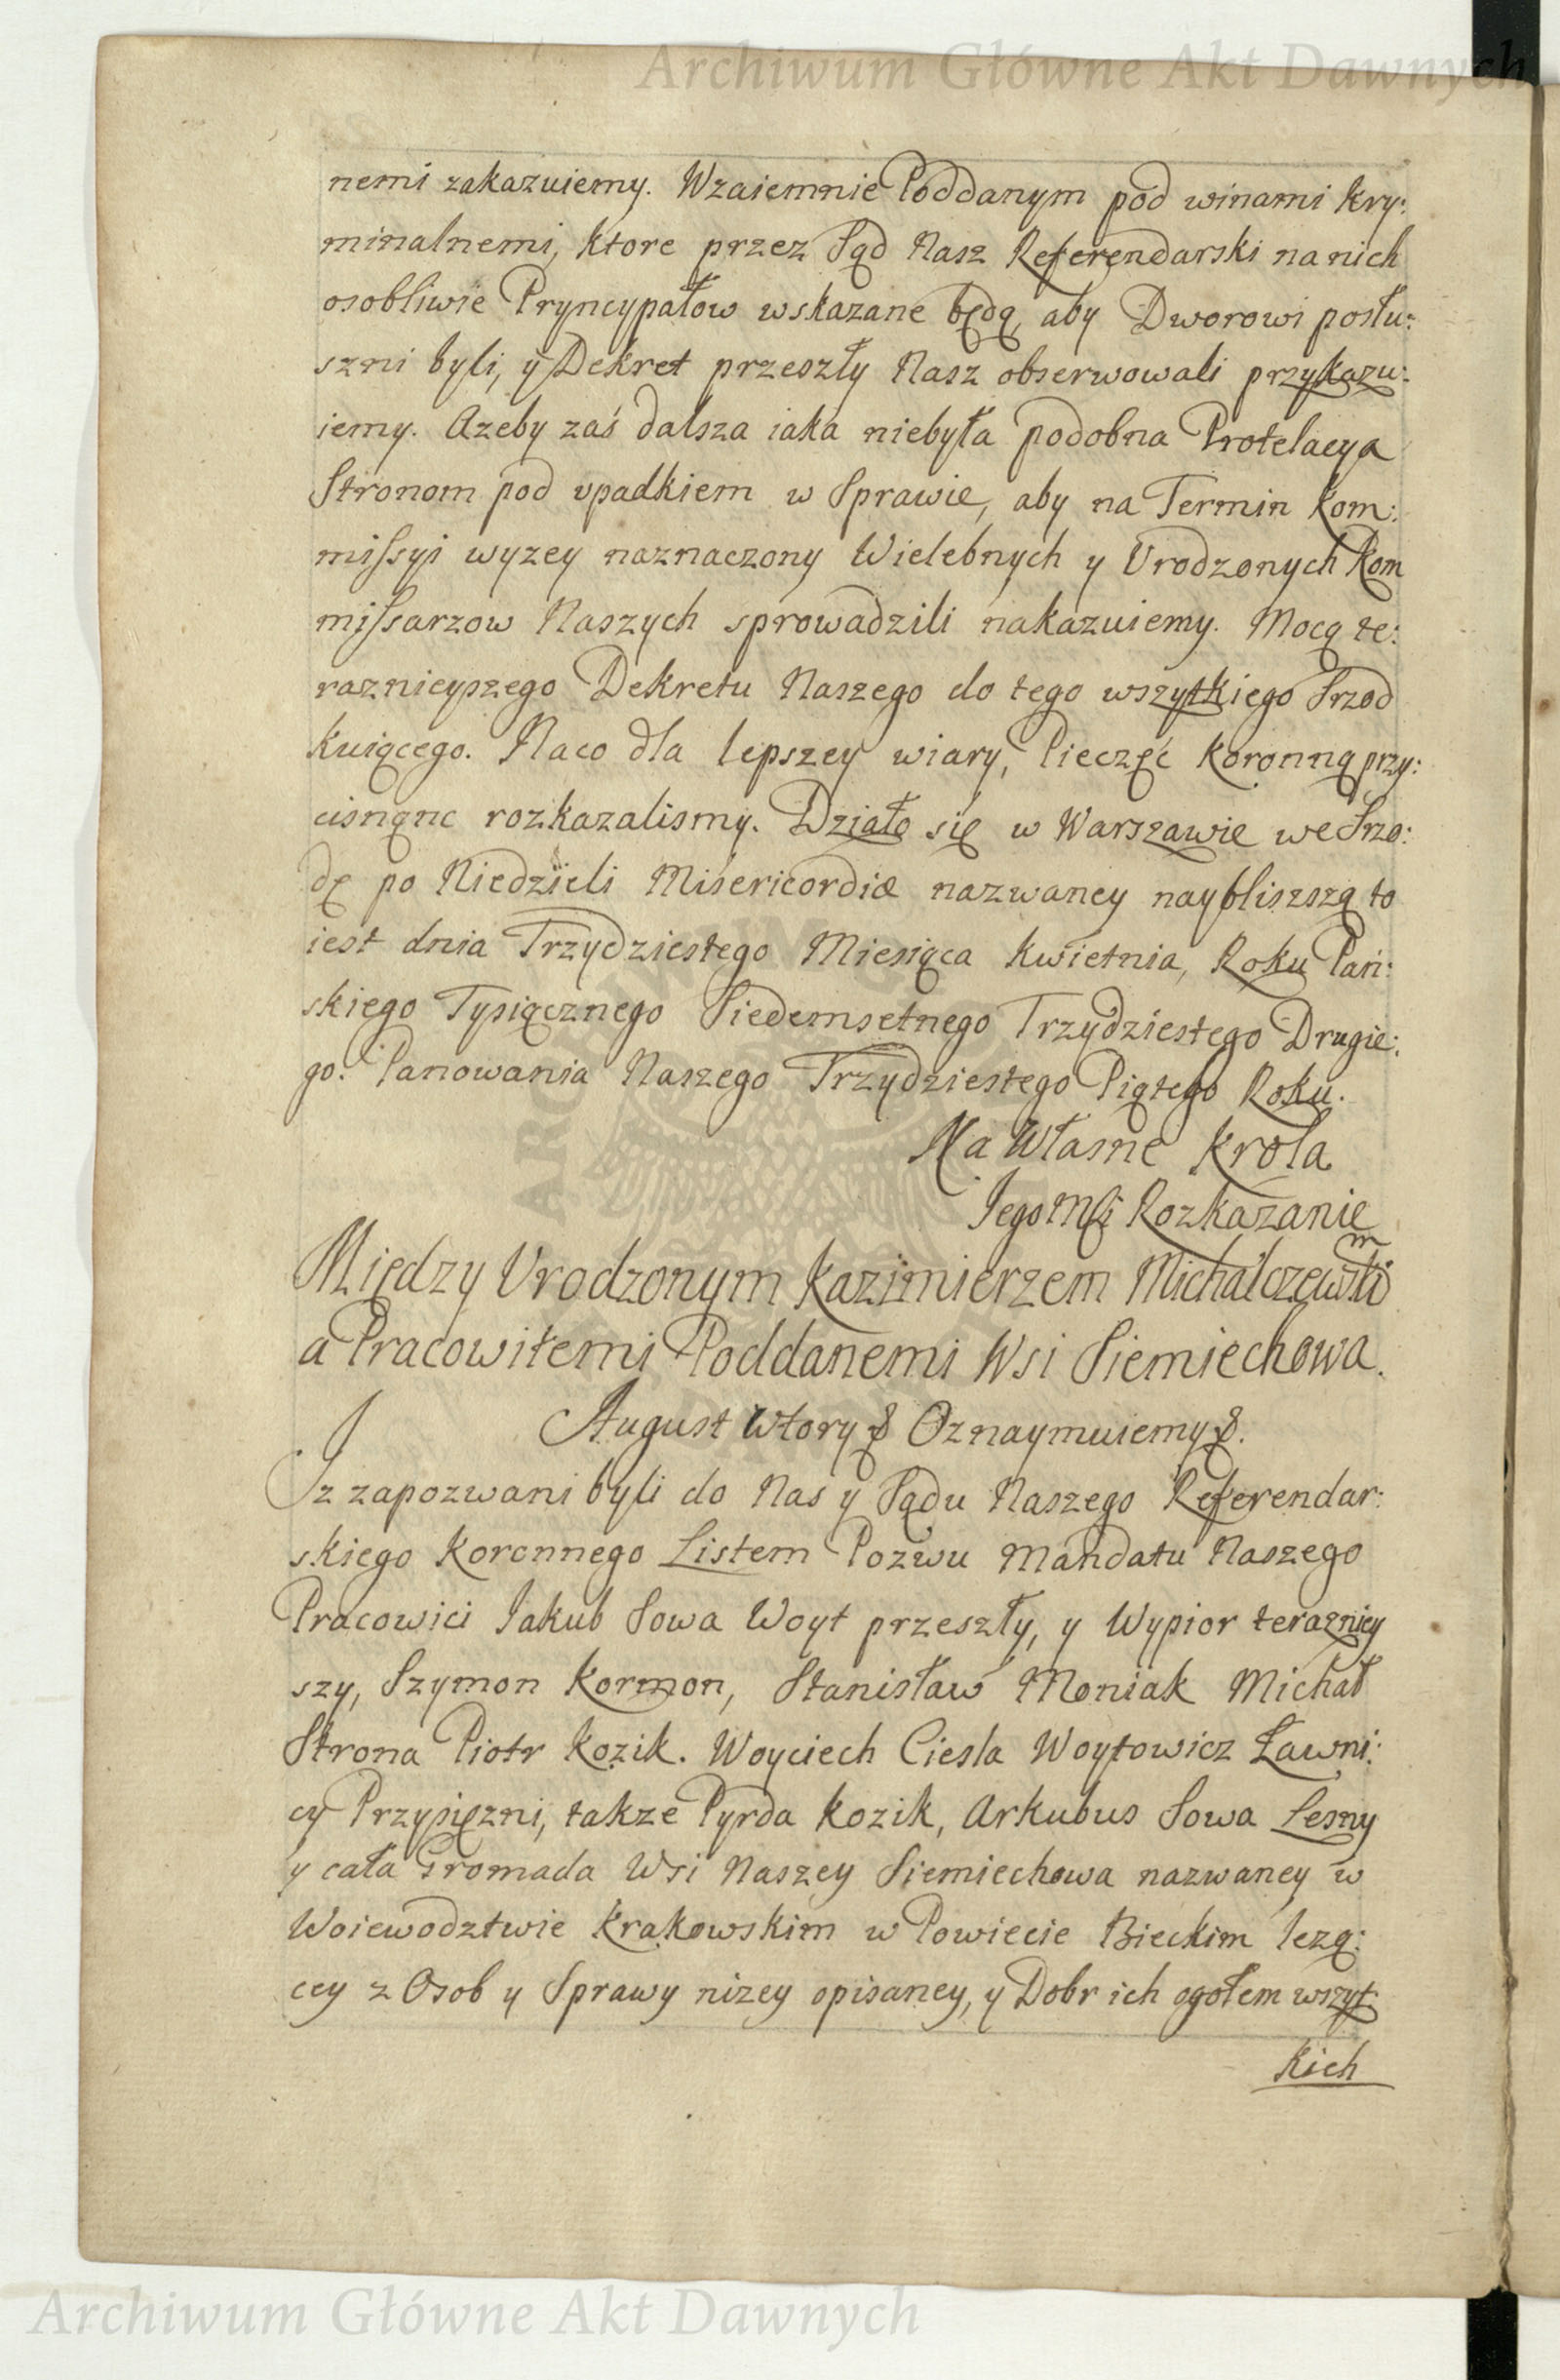 Archiwum Główne Akt Dawnych
nemi zakazuiemy. Wzaiemnie Poddanym pod winami kry:
minalnemi, ktore przez Sąd Nasz Referendarski na nich
osobliwie Pryncypałow wskazane będą, aby Dworowi posłu:
szni byli, y Dekret przeszły Nasz obserwowali przykazu:
iemy. Azeby zaś dalsza iaka niebyła podobna Protelacya
Stronom pod vpadkiem w Sprawie, aby na Termin Kom:
missyi wyzey naznaczony Wielebnych y Vrodzonych Kom
missarzow Naszych sprowadzili nakazuiemy. Mocą te:
raznieyszego Dekretu Naszego do tego wszytkiego Srzod
kuiącego. Naco dla lepszey wiary, Pieczęć Koronną przy:
cisnąnc rozkazalismy. Działo się w Warszawie we Srzo:
dę po Niedzieli Misericordiæ nazwaney naybliszszą to
iest dnia Trzydziestego Miesiąca Kwietnia, Roku Pań:
skiego Tysiącznego Siedemsetnego Trzydziestego Drugie:
go. Panowania Naszego Trzydziestego Piątego Roku.
Na Własne Krola
Jego Mści Rozkazanie
Między Vrodzonym Kazimierzem Michalczewskim
a Pracowitemi Poddanemi Wsi Siemiechowa.
August Wtory & Oznaymuiemy &.
Jz zapozwani byli do Nas y Sądu Naszego Referendar:
skiego Koronnego Listem Pozwu Mandatu Naszego
Pracowici Jakub Sowa Woyt przeszły, y Wypior terazniey
szy, Szymon Kormon, Stanisław Moniak Michał
Strona Piotr Kozik. Woyciech Ciesla Woytowicz Ławni:
cy Przysięzni, takze Pyrda Kozik, Arkubus Sowa Lesny
y cała Gromada Wsi Naszey Siemiechowa nazwaney w
Woiewodztwie Krakowskim w Powiecie Bieckim lezą:
cey z Osob y Sprawy nizey opisaney, y Dobr ich ogołem wszyt
kich
Archiwum Główne Akt Dawnych